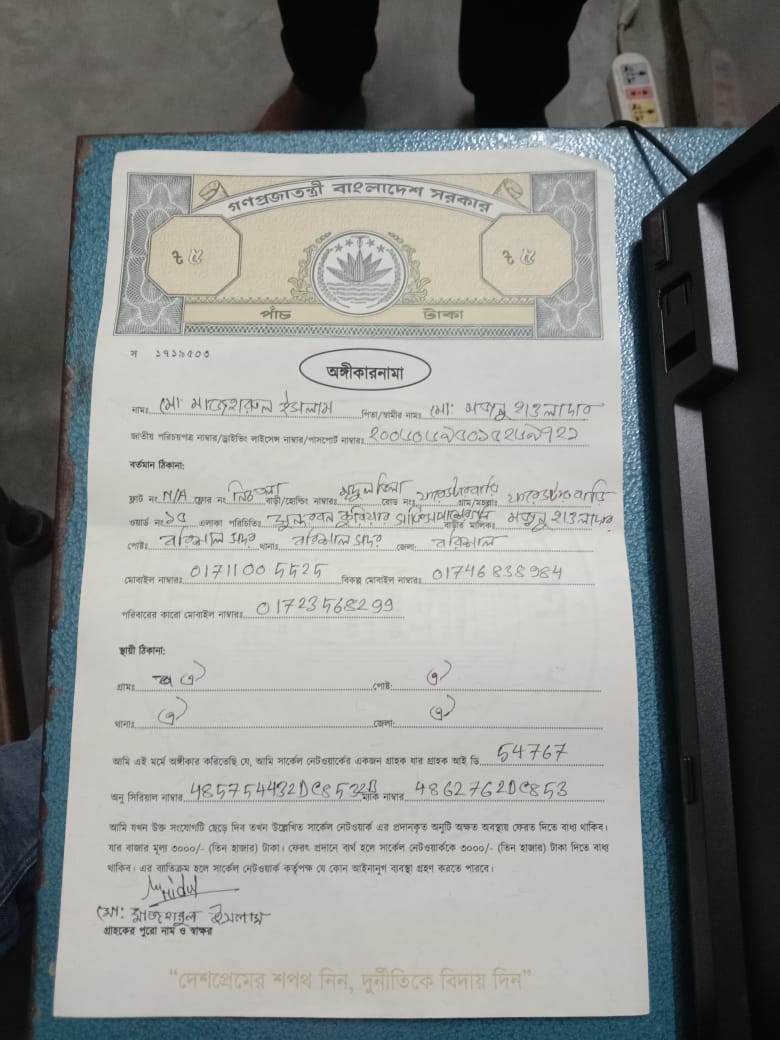 গণপ্রজাতন্ত্রী বাংলাদেশ সরকার
৳ ৫ ৳ ৫
পাঁচ টাকা
স ১৭১৯৫০৩
অঙ্গীকারনামা
নামঃ মোঃ মাজেহারুল ইসলাম পিতা/স্বামীর নামঃ মোঃ মজনু হাওলাদার
জাতীয় পরিচয়পত্র নাম্বার/ড্রাইভিং লাইসেন্স নাম্বার/পাসপোর্ট নাম্বারঃ
বর্তমান ঠিকানা:
ফ্লাট নং N/A ফ্লোর নং নিচ তলা বাড়ী/হোল্ডিং নাম্বারঃ মৃদুল ভিলা রোড নংঃ গ্রাম/মহল্লাঃ
ওয়ার্ড নং এলাকা পরিচিতিঃ সুন্দরবন কুরিয়ার সার্ভিস বাড়ীর মালিকঃ মজনু হাওলাদার
পোষ্টঃ বরিশাল সদর থানাঃ বরিশাল সদর জেলাঃ বরিশাল
মোবাইল নাম্বারঃ 01711005525 বিকল্প মোবাইল নাম্বারঃ 01746838984
পরিবারের কারো মোবাইল নাম্বারঃ 01723568299
স্থায়ী ঠিকানা:
গ্রামঃ ঐ পোষ্ট: ঐ
থানাঃ ঐ জেলা: ঐ
আমি এই মর্মে অঙ্গীকার করিতেছি যে, আমি সার্কেল নেটওয়ার্কের একজন গ্রাহক যার গ্রাহক আই ডি 54767
অনু সিরিয়াল নাম্বার 485754432DC8532D ম্যাক নাম্বার 4862762DC853
আমি যখন উক্ত সংযোগটি ছেড়ে দিব তখন উল্লেখিত সার্কেল নেটওয়ার্ক এর প্রদানকৃত অনুটি অক্ষত অবস্থায় ফেরত দিতে বাধ্য থাকিব।
যার বাজার মূল্য ৩০০০/- (তিন হাজার) টাকা। ফেরৎ প্রদানে ব্যর্থ হলে সার্কেল নেটওয়ার্ককে ৩০০০/- (তিন হাজার) টাকা দিতে বাধ্য
থাকিব। এর ব্যতিক্রম হলে সার্কেল নেটওয়ার্ক কর্তৃপক্ষ যে কোন আইনানুগ ব্যবস্থা গ্রহণ করতে পারবে।
Mridul
মোঃ মাজহারুল ইসলাম
গ্রাহকের পুরো নাম ও স্বাক্ষর
“দেশপ্রেমের শপথ নিন, দুর্নীতিকে বিদায় দিন”